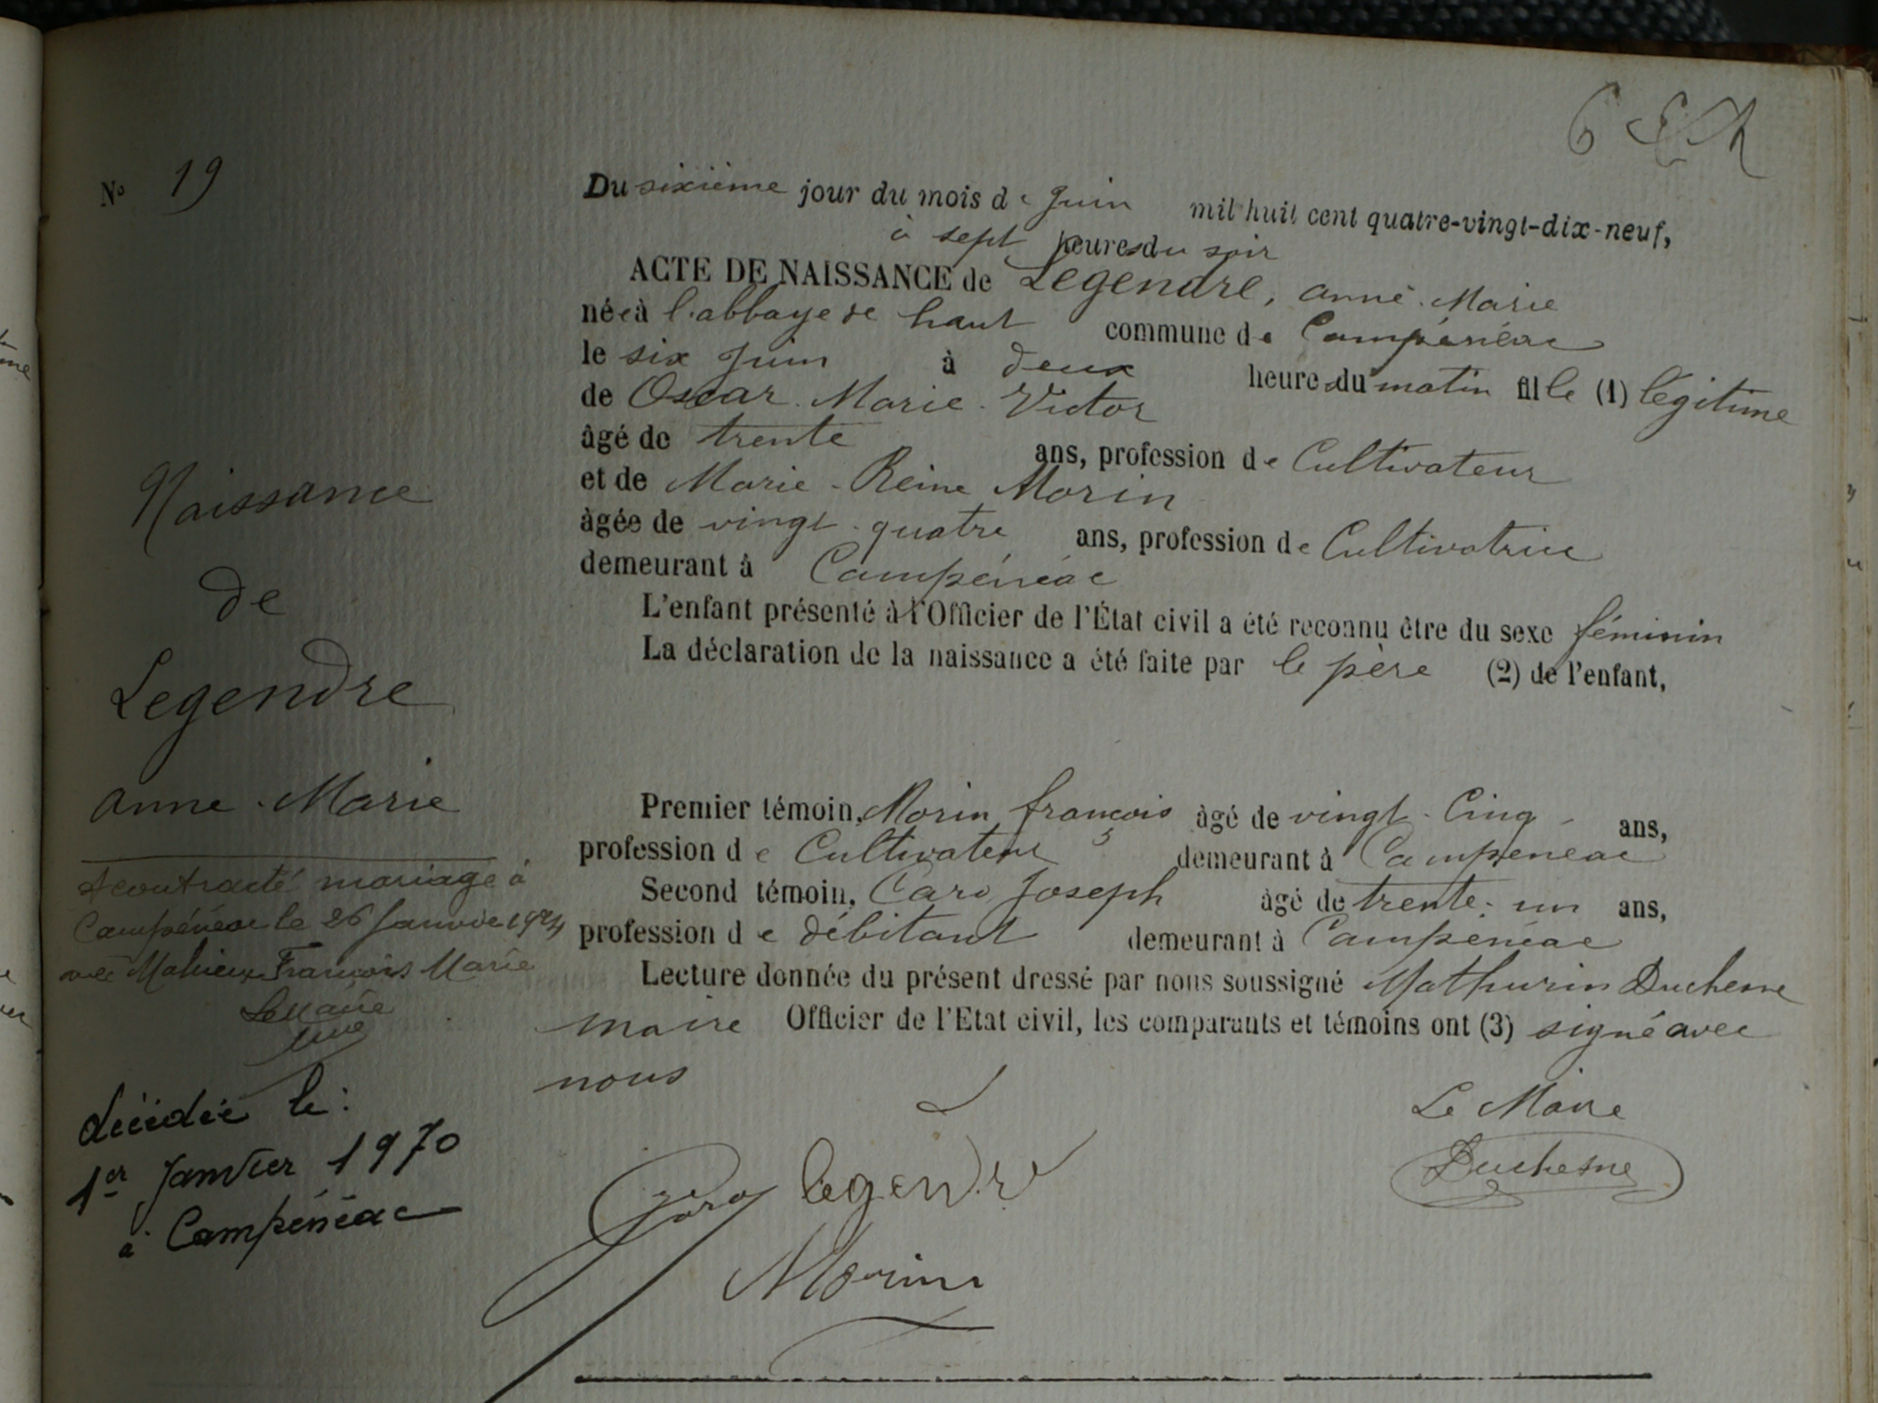 N° 19
Du sixième jour du mois de Juin mil huit cent quatre-vingt-dix-neuf,
à sept heures du soir
ACTE DE NAISSANCE de Legendre, anne-Marie
née à l'abbaye de haut commune de Campénéac
le six Juin à deux heures du matin fille (1) légitime
de Oscar Marie Victor
âgé de trente ans, profession de Cultivateur
et de Marie-Reine Morin
âgée de vingt-quatre ans, profession de Cultivatrice
demeurant à Campénéac
L'enfant présenté à l'Officier de l'État civil a été reconnu être du sexe féminin
La déclaration de la naissance a été faite par le père (2) de l'enfant,
Premier témoin, Morin françois âgé de vingt-Cinq ans,
profession de Cultivateur demeurant à Campénéac
Second témoin, Caro Joseph âgé de trente-un ans,
profession de débitant demeurant à Campénéac
Lecture donnée du présent dressé par nous soussigné Mathurin Duchesne
maire Officier de l'Etat civil, les comparants et témoins ont (3) signé avec
nous
Le Maire
Duchesne
legendre
Morin
Naissance
de
Legendre
anne-Marie
A contracté mariage à
Campénéac le 26 Janvier 1924
avec Mahieux François Marie
Le Maire
décédée le:
1er Janvier 1970
à Campénéac